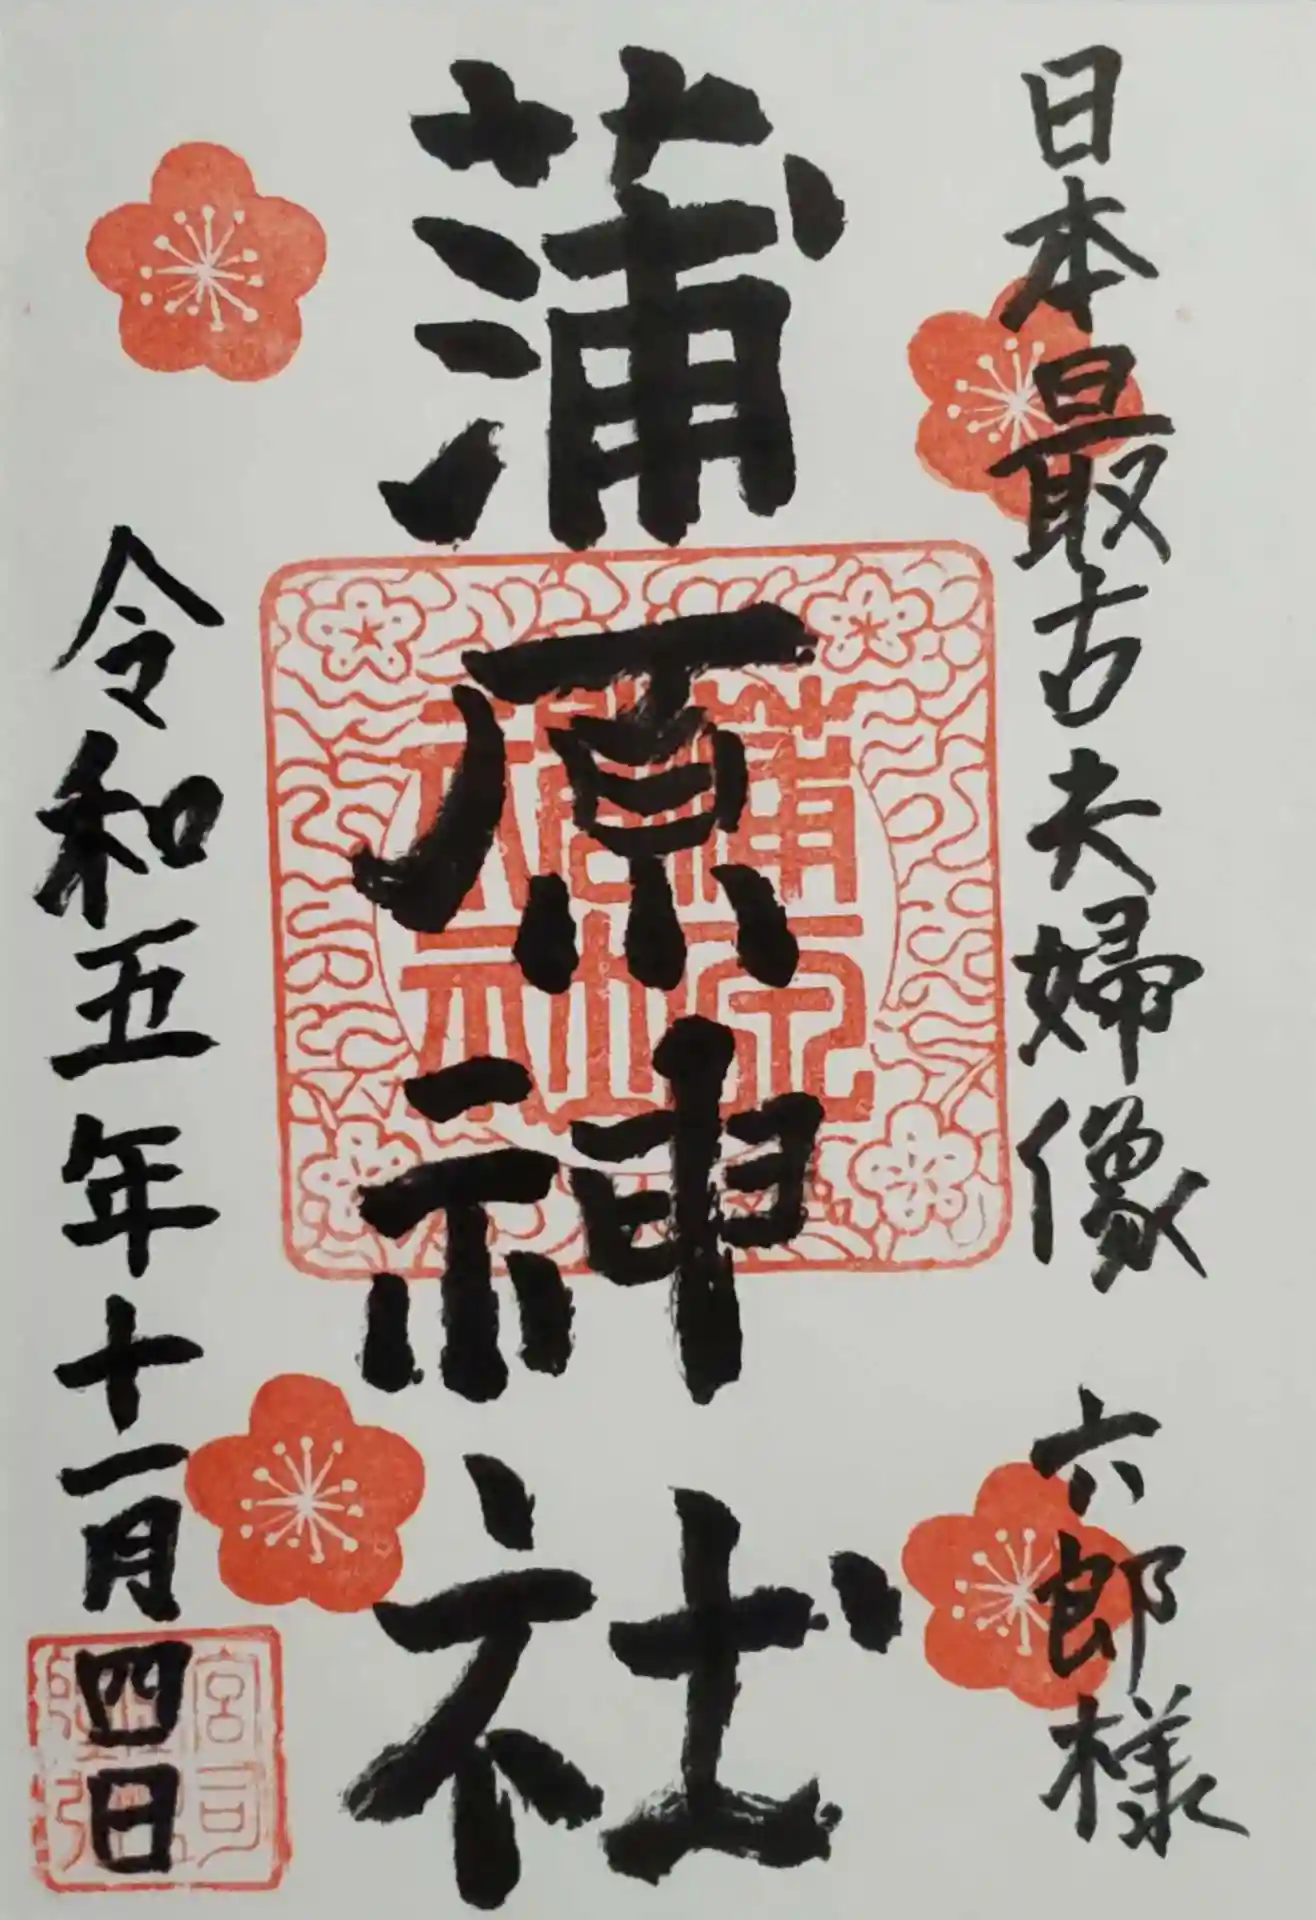 日本最古夫婦像 六郎様
蒲原神社
令和五年十一月四日
宮司